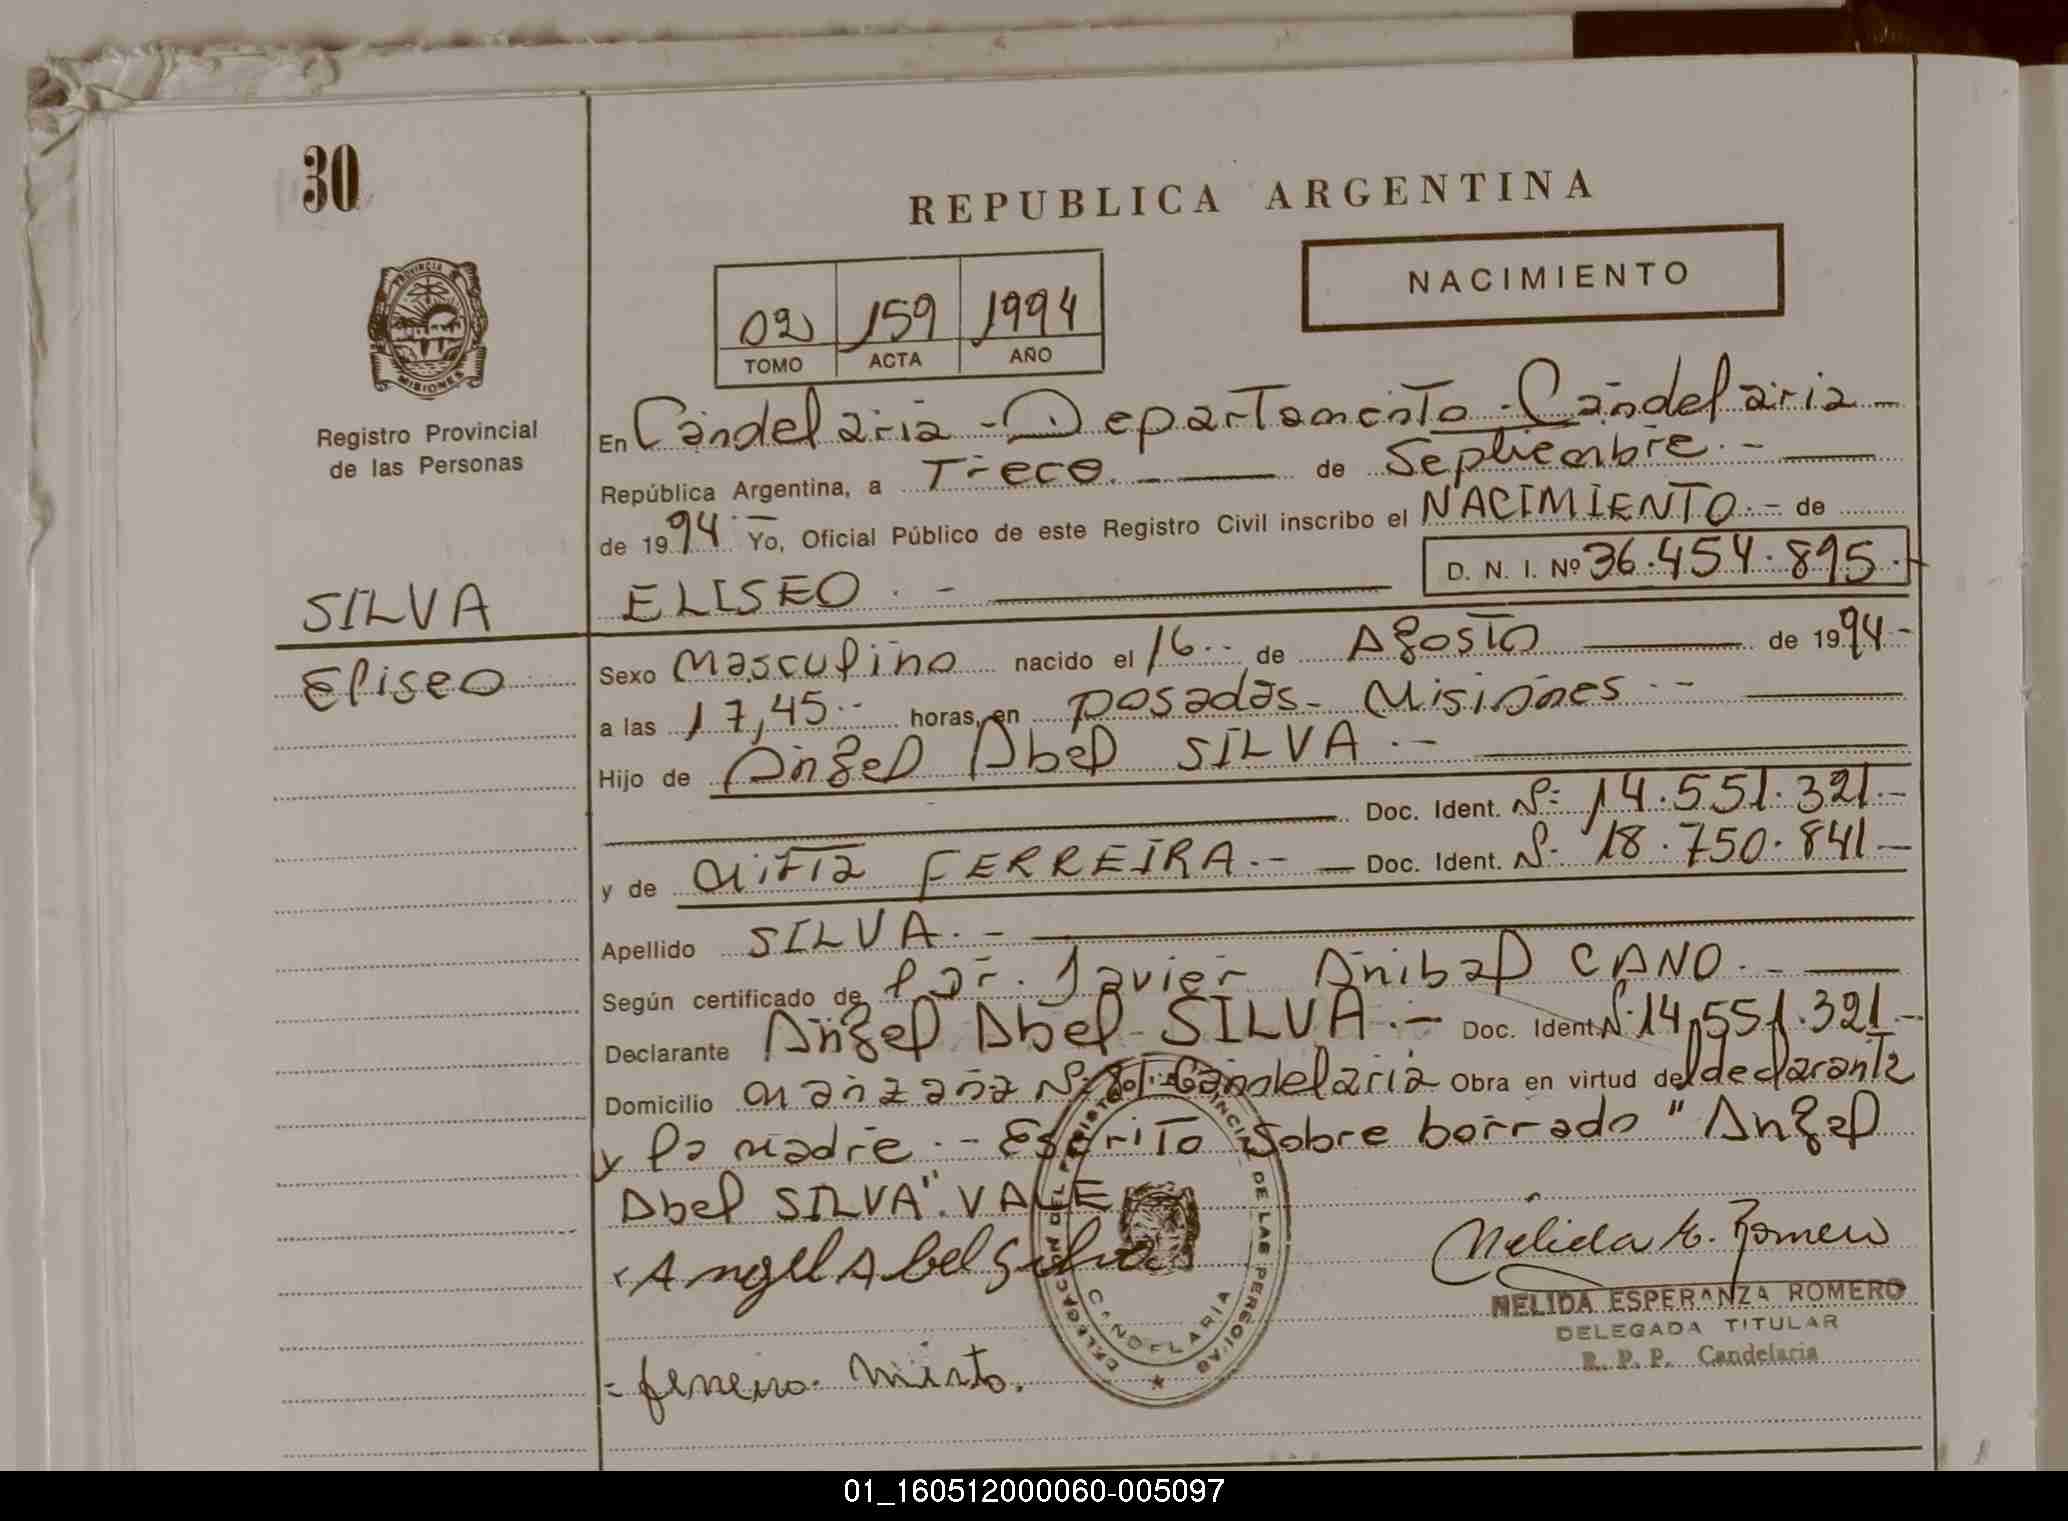 30
REPUBLICA ARGENTINA
NACIMIENTO
02 159 1994
TOMO ACTA AÑO
PROVINCIA DE
MISIONES
Registro Provincial
de las Personas
En Candelaria - Departamento - Candelaria -
República Argentina, a Trece. - de Septiembre. -
de 1994.- Yo, Oficial Público de este Registro Civil inscribo el NACIMIENTO. - de
D. N. I. Nº 36.454.895.-
SILVA
Eliseo
ELISEO . -
Sexo Masculino nacido el 16.. de Agosto de 1994.-
a las 17,45.. horas, en Posadas - Misiones . -
Hijo de Angel Abel SILVA . -
Doc. Ident. Nº 14.551.321.-
y de Mirta FERREIRA. - Doc. Ident. Nº 18.750.841.-
Apellido SILVA. -
Según certificado de Dr. Javier Anibal CANO. -
Declarante Angel Abel SILVA. - Doc. Ident. Nº 14.551.321.-
Domicilio Manzana Candelaria Obra en virtud del declarante
y la madre . - Escrito sobre borrado "Angel
Abel SILVA". VALE
Angel Abel Silva
ferreira. mirta.
DELEGACION DEL REGISTRO PROVINCIAL DE LAS PERSONAS
CANDELARIA
Nélida E. Romero
NELIDA ESPERANZA ROMERO
DELEGADA TITULAR
R. P. P. Candelaria
01_160512000060-005097